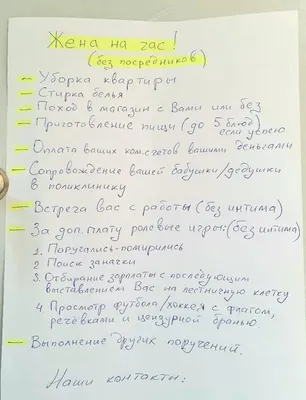 Жена на час!
(без посредников)
– Уборка квартиры
– Стирка белья
– Поход в магазин с Вами или без
– Приготовление пищи (до 5 блюд)
если успею
– Оплата ваших ком.счетов вашими деньгами
– Сопровождение вашей бабушки/дедушки
в поликлинику
– Встреча вас с работы (без интима)
– За доп. плату ролевые игры: (без интима)
1. Поругались-помирились
2. Поиск заначки
3. Отбирание зарплаты с последующим
выставлением Вас на лестничную клетку
4. Просмотр футбола/хоккея с флагом,
речёвками и цензурной бранью.
– Выполнение других поручений.
Наши контакты: